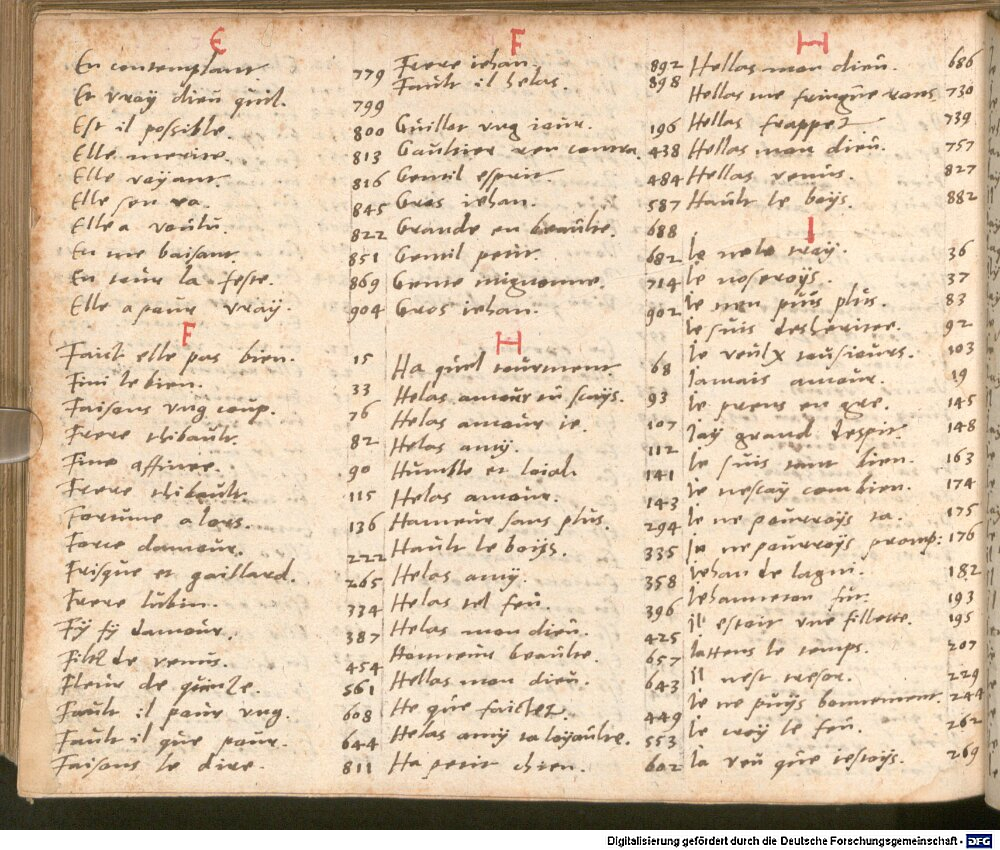 E
En contemplant. 779
Et vray dieu quil. 799
Est il possible. 800
Elle merite. 813
Elle voyant. 816
Elle sen va. 845
Elle a voulu. 822
En me baisant. 851
En tour la feste. 869
Elle a pour vray. 904
F
Faict elle pas bien. 15
Fini le bien. 33
Faisons vng coup. 76
Frere thibault. 82
Fine affinee. 90
Frere thibault. 115
Fortune alors. 136
Force damour. 222
Frisque et gaillard. 265
Frere lubin. 334
Fy fy damour. 387
Filz de venus. 454
Fleur de quinze. 561
Fault il pour vng. 608
Fault il que pour. 644
Faisons le dire. 811
F
Frere iehan. 892
Fault il helas. 898
Guillot vng iour. 196
Gaultier ren contra. 438
Gentil esprit. 484
Gros iehan. 587
Grande en beaulte. 688
Gentil petit. 682
Gente mignonne. 714
Gros iehan. 902
H
Ha quel tourment 68
Helas amour tu scays. 93
Helas amour ie. 107
Helas amy. 112
Humble et loial. 141
Helas amour. 143
Hameur sans plus. 294
Hault le boys. 335
Helas amy. 358
Helas tel feu. 396
Helas mon dieu. 425
Honneur beaulte. 657
Hellas mon dieu. 643
He que faictez. 449
Helas amy ta loyaulte. 553
Ha petit chien. 602
H
Hellas mon dieu. 686
Hellas me fringue vous 730
Hellas frappez 739
Hellas mon dieu. 757
Hellas venus. 827
Hault le boys. 882
I
Ie nole croy. 36
Ie noseroys. 37
Ie nen puis plus. 83
Ie suis desheritee. 92
Ie veulx tousiours. 103
Iamais amour. 19
Ie prens en gre. 145
Iay grand despit. 148
Ie suis tant bien. 163
Ie nescay combien. 174
Ie ne pourroys ta. 175
Ie ne pourroys promp: 176
Iehan de lagni. 182
Iehanneton fut. 193
Il estoit vne fillette. 195
Iattens le temps. 207
Il nest tresor. 229
Ie ne puys bonnement 244
Ie croy le feu. 262
Ia veu que iestoys. 269
Digitalisierung gefördert durch die Deutsche Forschungsgemeinschaft - DFG